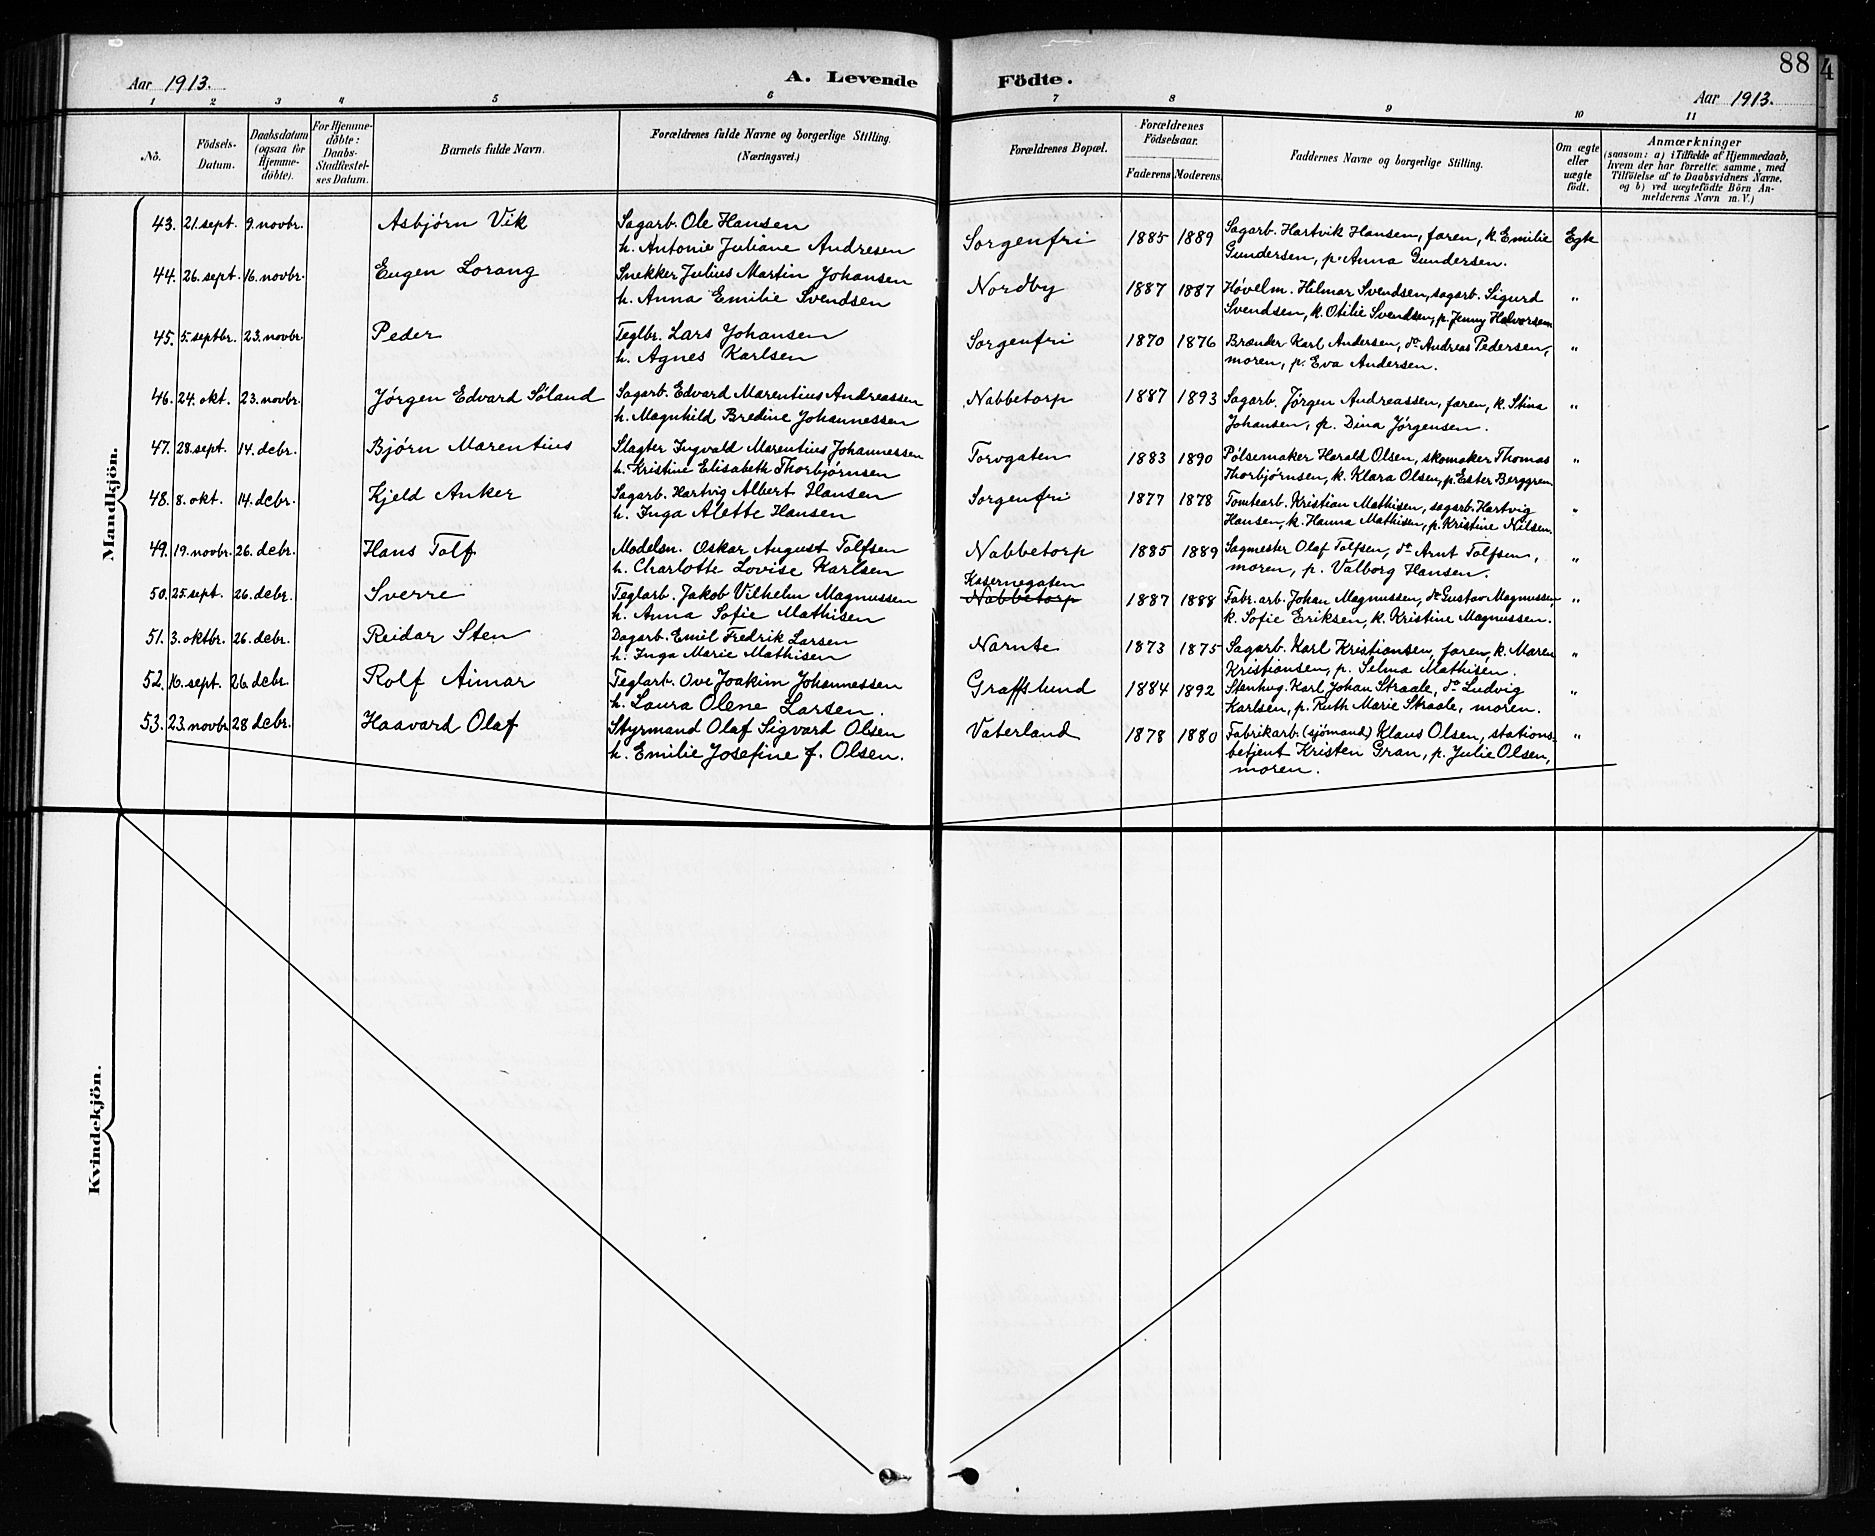 88
4
Aar 1913.
A. Levende Födte.
Aar 1913.
1 2 3 4 5 6 7 8 9 10 11
No.
Födsels-Datum.
Daabsdatum (ogsaa for Hjemmedöbte).
For Hjemmedöbte: Daabs-Stadfæstelses Datum.
Barnets fulde Navn.
Forældrenes fulde Navne og borgerlige Stilling.
(Næringsvei.)
Forældrenes Bopæl.
Forældrenes Födselsaar.
Faderens Moderens
Faddernes Navne og borgerlige Stilling.
Om ægte eller uægte födt.
Anmærkninger
(saasom: a) i Tilfælde af Hjemmedaab, hvem der har forrettet samme, med Tilföielse af to Daabsvidners Navne, og b) ved uægtefödte Börn Anmelderens Navn m. V.)
Mandkjön.
43. 21. sept. 9. novbr. Asbjørn Vik Sagarb. Ole Hansen Sorgenfri 1885 1889 Sagarb. Hartvik Hansen, faren, k. Emilie Egte
h. Antonie Juliane Andresen Gundersen, p. Anna Gundersen.
44. 26. sept. 16. novbr. Eugen Lorang Snekker Julius Martin Johansen Nordby 1887 1887 Høvelm. Hilmar Svendsen, sagarb. Sigurd "
h. Anna Emilie Svendsen Svendsen, k. Otilie Svendsen, p. Jenny Halvorsen
45. 5. septbr. 23. novbr. Peder Teglbr. Lars Johansen Sorgenfri 1870 1876 Brænder Karl Andersen, do Andreas Pedersen, "
h. Agnes Karlsen moren, p. Eva Andersen.
46. 24. okt. 23. novbr. Jørgen Edvard Søland Sagarb. Edvard Marentius Andreassen Nabbetorp 1887 1893 Sagarb. Jørgen Andreassen, faren, k. Stina "
h. Magnhild Bredine Johannessen Johansen, p. Dina Jørgensen.
47. 28. sept. 14. debr. Bjørn Marentius Slagter Ingvald Marentius Johannessen Torvgaten 1883 1890 Pølsemaker Harald Olsen, skomaker Thomas "
h. Kristine Elisabeth Thorbjørnsen Thorbjørnsen, k. Klara Olsen, p. Ester Berggren
48. 8. okt. 14. debr. Kjeld Anker Sagarb. Hartvig Albert Hansen Sorgenfri 1877 1878 Tomtearb. Kristian Mathisen, sagarb. Hartvig "
h. Inga Alette Hansen Hansen, k. Hanna Mathisen, p. Kristine Nilsen.
49. 19. novbr. 26. debr. Hans Tolf Modelsn. Oskar August Tolfsen Nabbetorp 1885 1889 Sagmester Olaf Tolfsen, do Arnt Tolfsen, "
h. Charlotte Lovise Karlsen moren, p. Valborg Hansen.
Kasernegaten
50. 25. sept. 26. debr. Sverre Teglarb. Jakob Vilhelm Magnussen Nabbetorp 1887 1888 Fabr. arb. Johan Magnussen, do Gustav Magnussen "
h. Anna Sofie Mathisen k. Sofie Eriksen, k. Kristine Magnussen.
51. 3. oktbr. 26. debr. Reidar Sten Dagarb. Emil Fredrik Larsen Narnte 1873 1875 Sagarb. Karl Kristiansen, faren, k. Maren "
h. Inga Marie Mathisen Kristiansen, p. Selma Mathisen.
52. 16. sept. 26. debr. Rolf Aimar Teglarb. Ove Joakim Johannessen Graffslund 1884 1892 Stenhug. Karl Johan Straale, do Ludvig "
h. Laura Olene Larsen. Karlsen, p. Ruth Marie Straale, moren.
53. 23. novbr. 28 debr. Haavard Olaf Styrmand Olaf Sigvard Olsen Vaterland 1878 1880 Fabrikarb. (sjømand) Klaus Olsen, stations- "
h. Emilie Josefine f. Olsen. betjent Kristen Gran, p. Julie Olsen,
moren.
Kvindekjön.